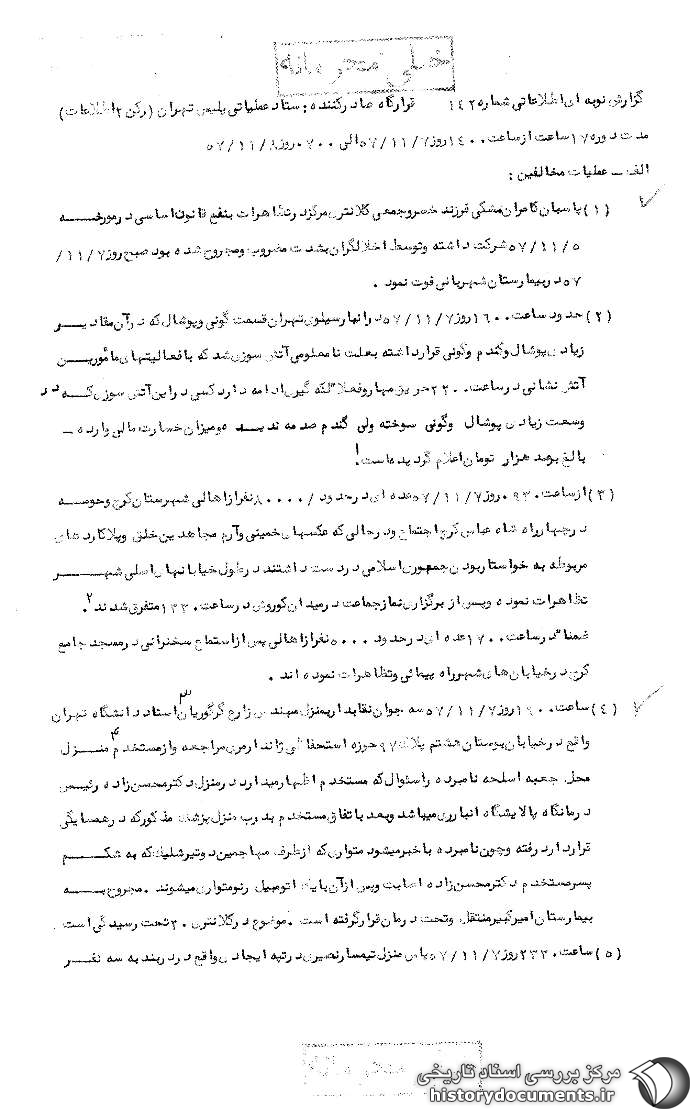 خیلی محرمانه
گزارش نوبه ای اطلاعاتی شماره ۱۴۲ قرارگاه صادرکننده : ستاد عملیاتی پلیس تهران (رکن ۲ اطلاعات)
مدت دوره ۱۷ ساعت از ساعت ۱۴۰۰ روز ۵۷/۱۱/۷ الی ۰۷۰۰ روز ۵۷/۱۱/۸
الف - عملیات مخالفین :
(۱) پاسبان کامران مشکی فرزند خسرو جمعی کلانتری مرکز در تظاهرات بنفع قانون اساسی در مورخه
۵۷/۱۱/۵ شرکت داشته و توسط اخلالگران بشدت مضروب و مجروح شده بود صبح روز ۱۱/۷/
۵۷ در بیمارستان شهربانی فوت نمود .
(۲) حدود ساعت ۱۶۰۰ روز ۵۷/۱۱/۷ در انبار سیلوی تهران قسمت گونی و پوشال که در آن مقادیر
زیادی پوشال و گندم و گونی قرار داشته بعلت نامعلومی آتش سوزی شد که با فعالیتهای مأمورین
آتش نشانی در ساعت ۲۲۰۰ حریق مهار و فعلا" لکه گیری ادامه دارد کسی در این آتش سوزی که در
وسعت زیادی پوشال و گونی سوخته ولی گندم صدمه ندیده و میزان خسارت مالی وارده -
بالغ بر صد هزار تومان اعلام گردیده است !
(۳) از ساعت ۰۹۳۰ روز ۵۷/۱۱/۷ عده ای در حدود ۸۰۰۰۰/ نفر از اهالی شهرستان کرج و حومه
در چهارراه شاه عباس کرج اجتماع و در حالی که عکسهای خمینی و آرم مجاهدین خلق و پلاکاردهای
مربوطه به خواستار بودن جمهوری اسلامی در دست داشتند در طول خیابانهای اصلی شهر
تظاهرات نموده و پس از برگزاری نماز جماعت در میدان کوروش در ساعت ۱۳۳۰ متفرق شدند ۲.
ضمنا" در ساعت ۱۷۰۰ عده ای در حدود ۵۰۰۰ نفر از اهالی پس از استماع سخنرانی در مسجد جامع
کرج در خیابان های شهر راه پیمائی و تظاهرات نموده اند .
(۴) ساعت ۱۹۰۰ روز ۵۷/۱۱/۷ سه جوان نقابدار بمنزل مهندس زارع گرگوریان ۳ استاد دانشگاه تهران
واقع در خیابان بوستان هشتم پلاک ۹۷ حوزه استحفاظی ژاندارمری مراجعه و از مستخدم ۴ منزل
محل جعبه اسلحه نامبرده را سئوال که مستخدم اظهار میدارد در منزل دکتر محسن زاده رئیس
درمانگاه پالایشگاه انبارری میباشد و بعد باتفاق مستخدم بدرب منزل پزشک مذکور که در همسایگی
قرار دارد رفته و چون نامبرده باخبر میشود متواری که از طرف مهاجمین دو تیر شلیک که به شکم
پسر مستخدم دکتر محسن زاده اصابت و پس از آن با یک اتومبیل رنو متواری میشوند . مجروح به
بیمارستان امیرکبیر منتقل و تحت درمان قرار گرفته است . موضوع در کلانتری ۳۰ تحت رسیدگی است .
(۵) ساعت ۲۳۳۰ روز ۵۷/۱۱/۷ پاس منزل تیمسار نصیری در تپه ایجادی واقع در دربند به سه نفر
مرکز بررسی اسناد تاریخی
historydocuments.ir